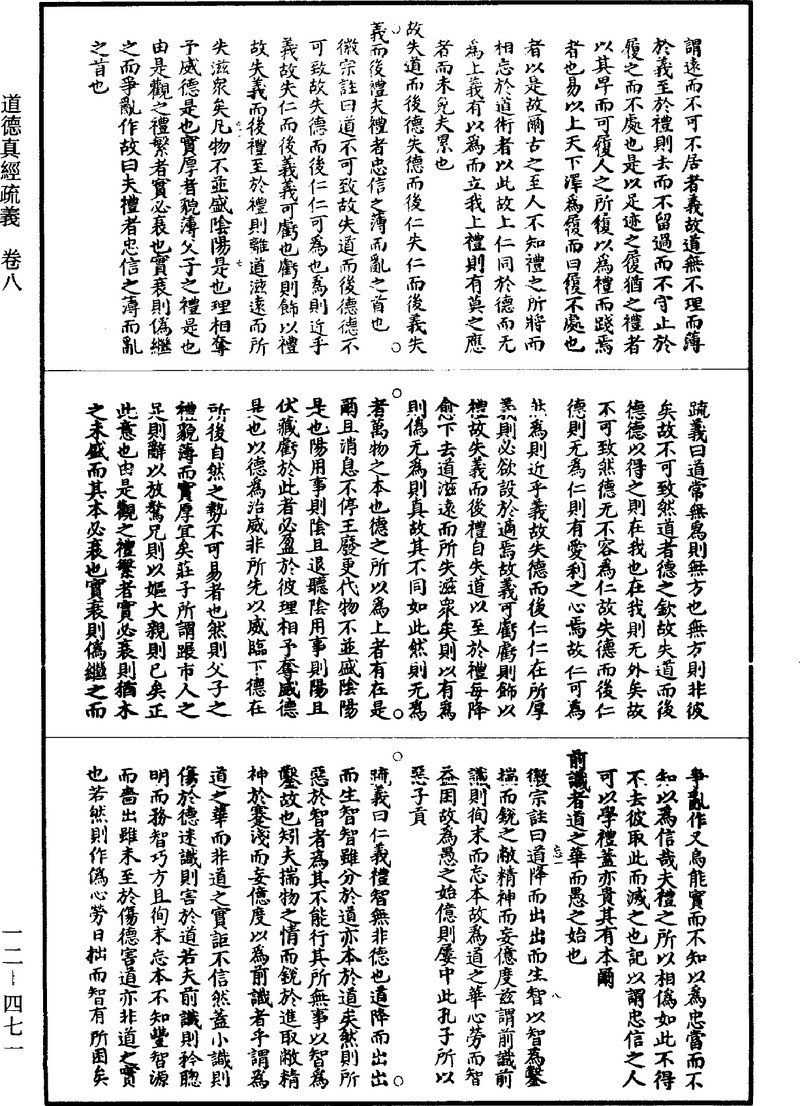 道德真經疏義　卷八
一二—四七一
謂遠而不可不居者義故道無不理而薄
於義至於禮則去而不留過而不守止於
履之而不處也是以足迹之履猶之禮者
以其卑而可履人之所履以為禮而踐焉
者也易以上天下澤為履而曰履不處也
者以是故爾古之至人不知禮之所將而
相忘於道術者以此故上仁同於德而无
為上義有以為而立我上禮則有莫之應
者而未免夫累也
故失道而後德失德而後仁失仁而後義失
義而後禮夫禮者忠信之薄而亂之首也
徽宗註曰道不可致故失道而後德德不
可致故失德而後仁仁可為也為則近乎
義故失仁而後義義可虧也虧則飾以禮
故失義而後禮至於禮則離道滋遠而所
失滋衆矣凡物不並盛陰陽是也理相奪
予威德是也實厚者貌薄父子之禮是也
由是觀之禮繁者實必衰也實衰則偽繼
之而爭亂作故曰夫禮者忠信之薄而亂
之首也
疏義曰道常無為則無方也無方則非彼
矣故不可致然道者德之欽故失道而後
德德以得之則在我也在我則无外矣故
不可致然德无不容為仁故失德而後仁
德則无為仁則有愛利之心焉故仁可為
其為則近乎義故失德而後仁仁在所厚
義則必欲設於適焉故義可虧虧則飾以
禮故失義而後禮自失道以至於禮每降
愈下去道滋遠而所失滋衆矣則以有為
則偽无為則真故其不同如此然則无為
者萬物之本也德之所以為上者有在是
爾且消息不停王廢更代物不並盛陰陽
是也陽用事則陰且退聽陰用事則陽且
伏藏虧於此者必盈於彼理相予奪威德
是也以德為治威非所先以威臨下德在
所後自然之勢不可易者也然則父子之
禮貌薄而實厚宜矣莊子所謂蹍市人之
足則辭以放驁兄則以嫗大親則已矣正
此意也由是觀之禮繁者實必衰則猶木
之末盛而其本必衰也實衰則偽繼之而
爭亂作又烏能實而不知以為忠當而不
知以為信哉夫禮之所以相偽如此不得
不去彼取此而滅之也記以謂忠信之人
可以學禮蓋亦貴其有本爾
前識者道之華而愚之始也
徽宗註曰道降而出出而生智以智為鑿
揣而銳之敝精神而妄億度茲謂前識前
識則徇末而忘本故為道之華心勞而智
益困故為愚之始億則屢中此孔子所以
惡子貢
疏義曰仁義禮智無非德也道降而出出
而生智智雖分於道亦本於道矣然則所
惡於智者為其不能行其所無事以智為
鑿故也矧夫揣物之情而銳於進取敝精
神於蹇淺而妄億度以為前識者乎謂為
道之華而非道之實詎不信然蓋小識則
傷於德迷識則害於道若夫前識則矜聰
明而務智巧方且徇末忘本不知豐智源
而嗇出雖未至於傷德害道亦非道之實
也若然則作偽心勞日拙而智有所困矣